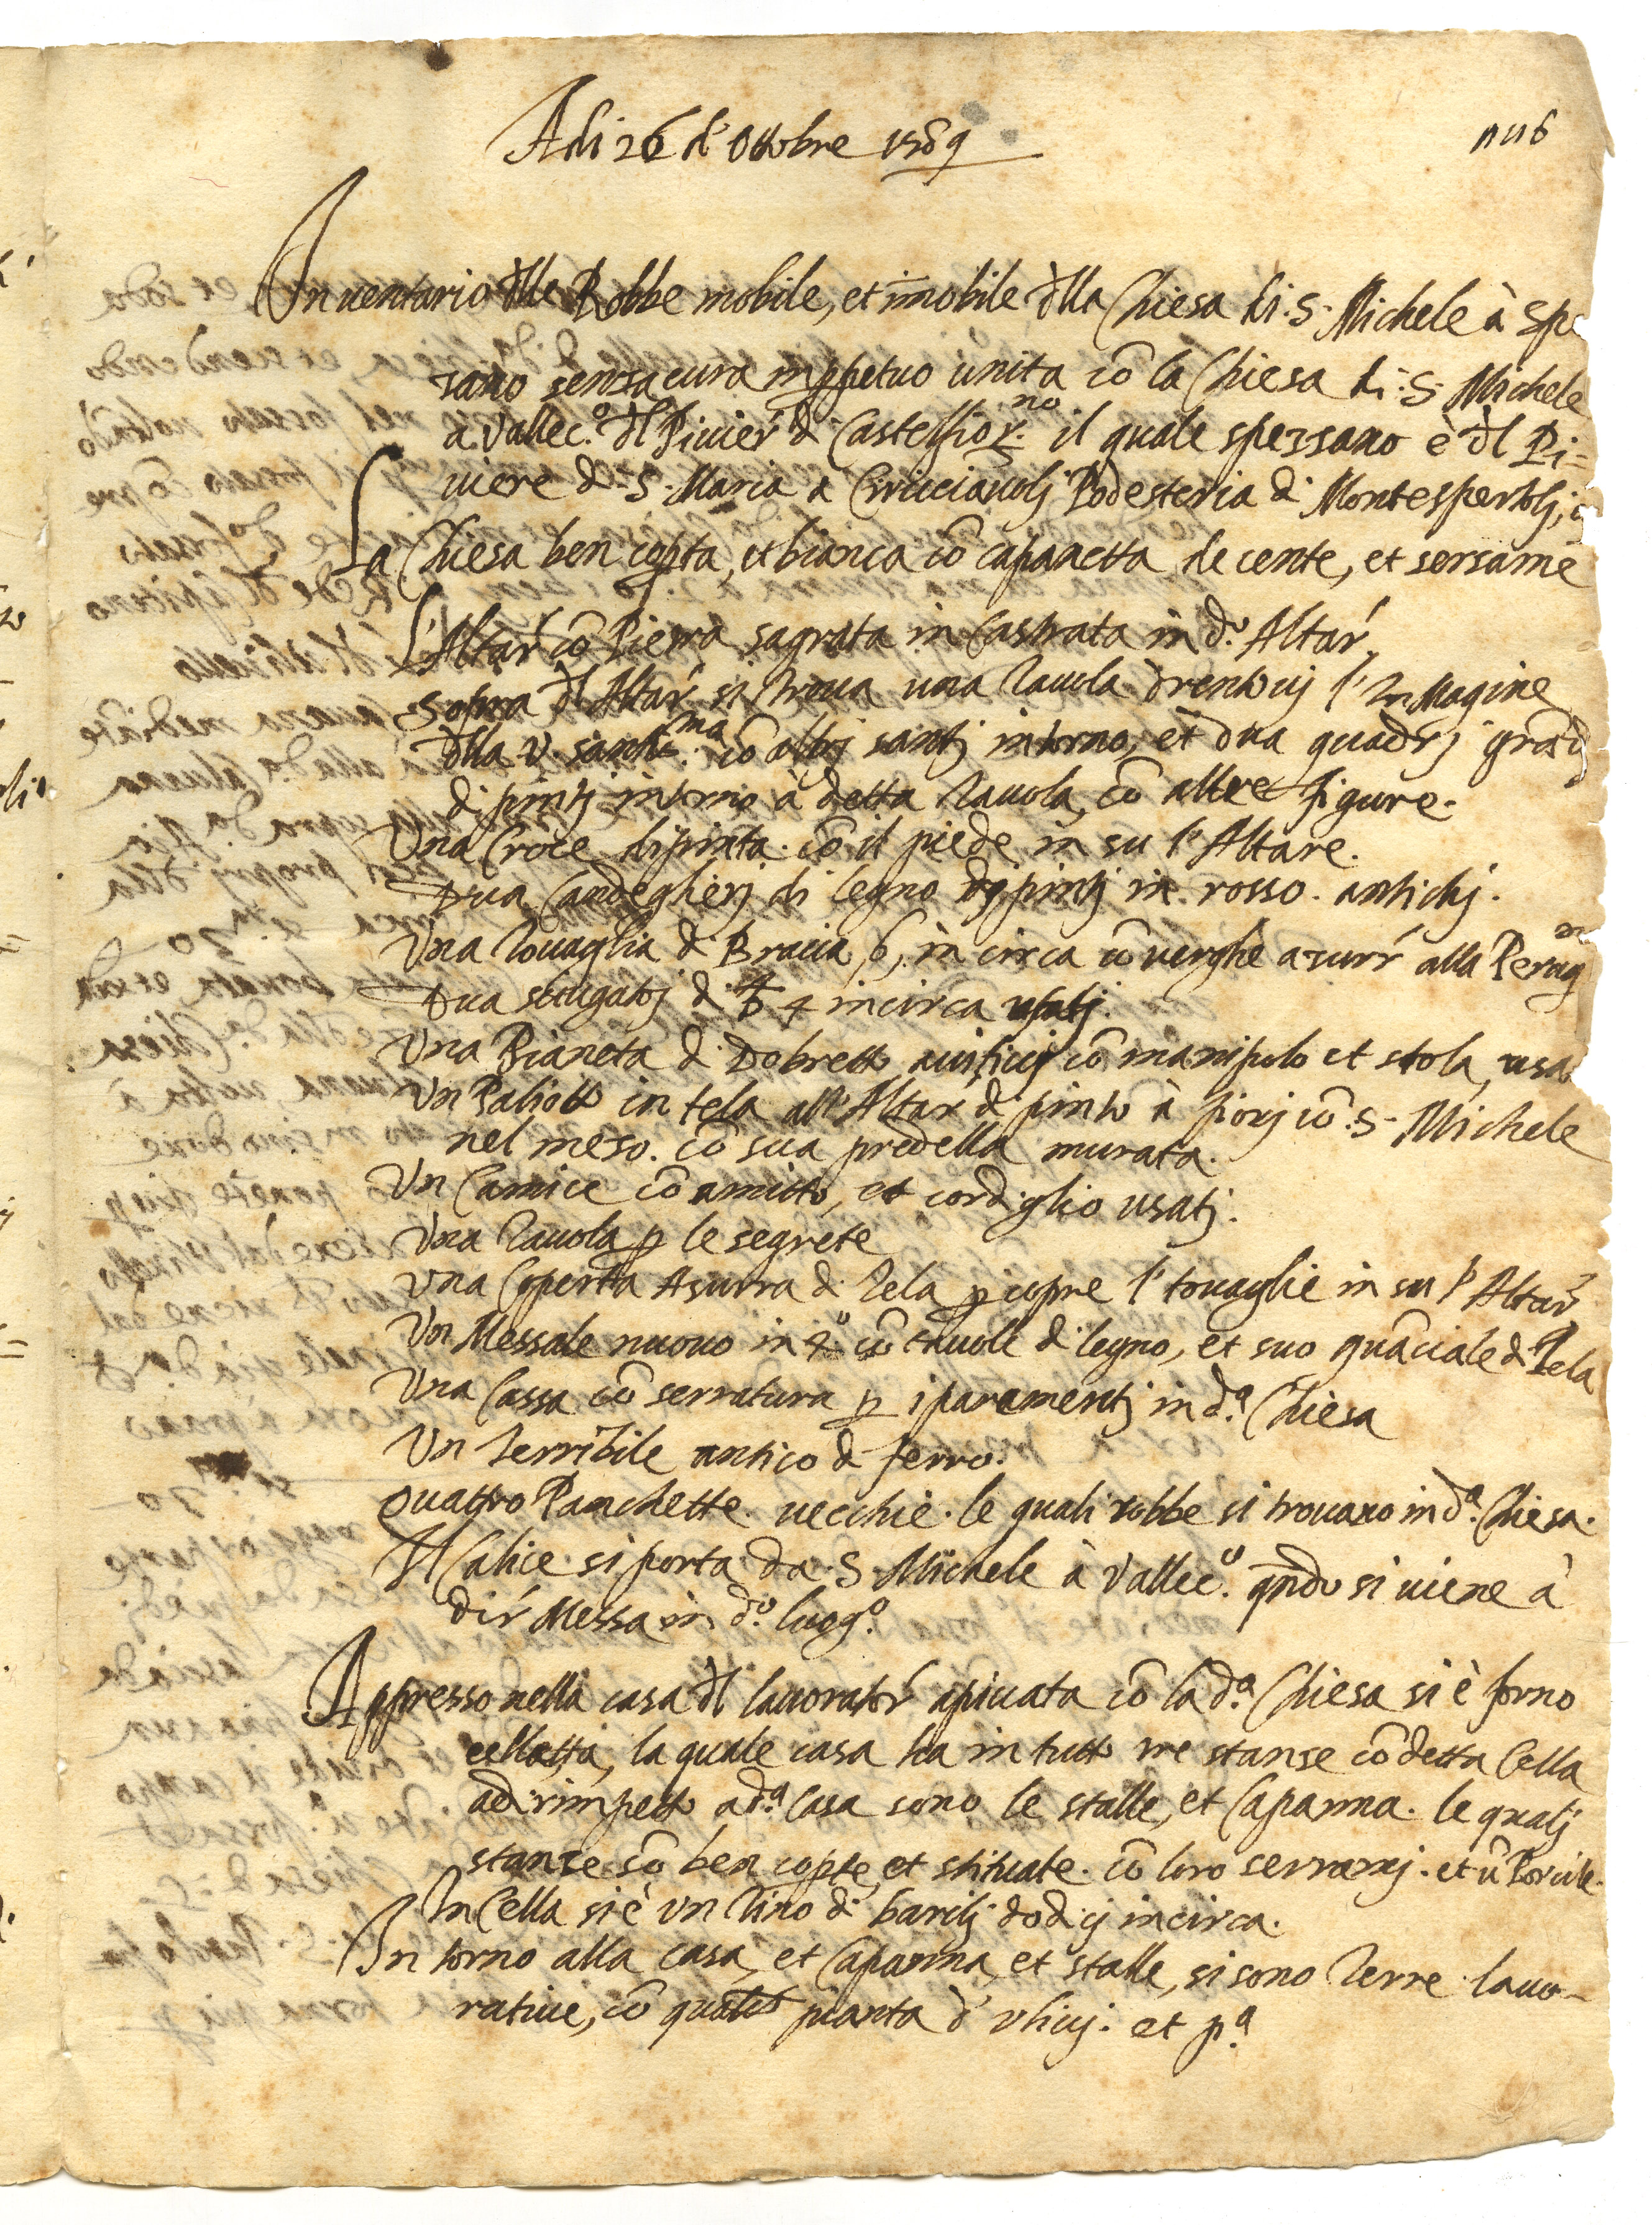 Adi 26 d' Ottobre 1589
n 116
Inuentario dlle Robbe mobile, et imobile dlla Chiesa di .S. Michele à Spe
zano senza cura in ppetuo unita cõ la Chiesa di .S. Michele
a Vallec.o dl Piuier d Castelfior.no il quale spezzano è dl Pi=
uiere d .S. Maria a Coeuciauolj Podesteria d Montespertolj,
La Chiesa ben copta, et bianca cõ capanetta decente, et sersame
L'Altar cõ Pietra sagrata in Castrata in d.o Altar,
sopra dl Altar si troua una Tauola drentouj l' In Magine
dlla V. santis.ma cõ altrj santj intorno, et dua quadrj grãdj
dipintj intorno à detta Tauola, cõ altre figure.
Una Croce dipinta. cõ il piede in su l'Altare.
Dua Candeglierj di legno dipintj in rosso. antichj.
Una Touaglia d Bracia 6, in circa cõ verghe azurr alla Perug
Dua sciugatoj d 4 incirca usatj.
Una Pianeta d Dobretto cõ manipolo et stola, usa
Un Paliotto in tela all'Altar dipinto à fiorj cõ .S. Michele
nel mezo. cõ sua predella murata.
Un Camice cõ amitto, et cordiglio usatj.
Una Tauola p le segrete
Una Coperta Azurra d Tela p copre l' touaglie in su l'Altar
Un Messale nuouo in 4o cõ tauole d legno, et suo guãciale d Tela
Una Cassa cõ serratura p i paramentj in d.a Chiesa
Un Terribile antico d ferro.
Quattro Panchette. uecchie. le quali robbe si trouano in d.a Chiesa.
Il Calice si porta da .S. Michele à Vallec.o qndo si uiene à
dir Messa in d.o luog.o
Appresso nella casa dl lauorator apiccata cõ la d.a Chiesa si è forno
la quale casa ha in tutto tre stanse cõ detta Cella
adirimpetto a d.a Casa sono le stalle, et Capanna. le qualj
stanze sõ ben copte, et stiuate. cõ loro serramj. et ũ Porcile.
In Cella si è un Tino di barilj dodicj incirca.
Intorno alla casa, et Capanna, et stalle, si sono Terre lauo-
ratiue, cõ qualche pianta d' Vliuj. et p.a